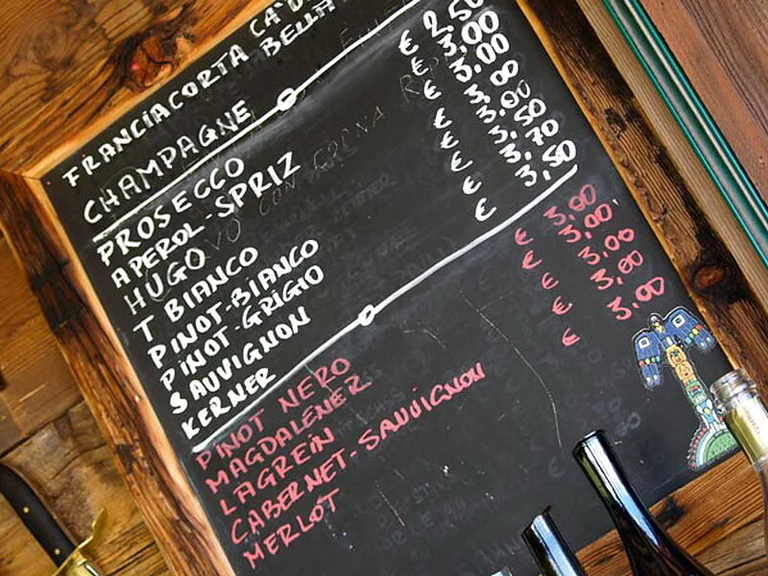 FRANCIACORTA CA'D
BELLA
CHAMPAGNE
PROSECCO € 2,50
APEROL-SPRIZ € 3,00
HUGO € 3,00
T BIANCO €
PINOT-BIANCO € 3,00
PINOT-GRIGIO € 3,50
SAUVIGNON € 3,70
KERNER € 3,50
PINOT NERO € 3,00
MAGDALENER € 3,00
LAGREIN 3,00
CABERNET-SAUVIGNON € 3,00
MERLOT € 3,00